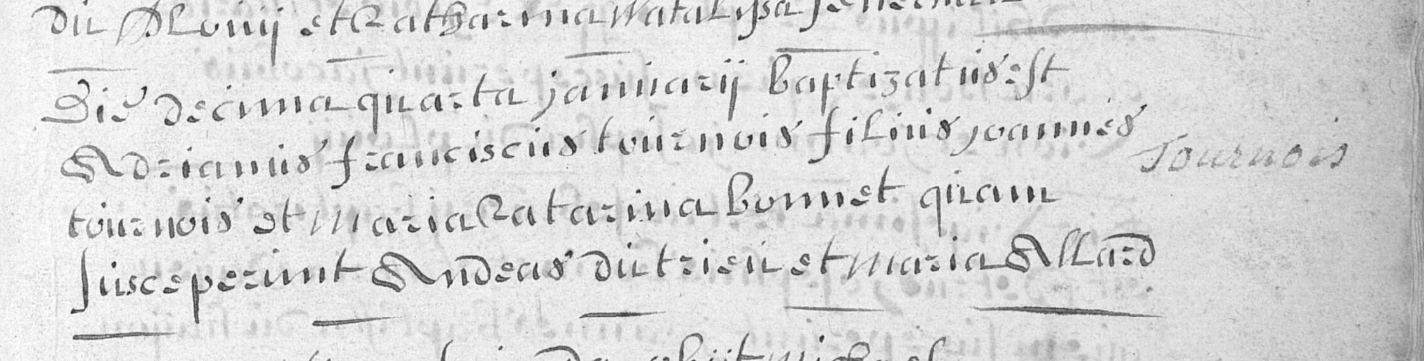 du plouij et Catharina natalissa
Die decima quarta januarij baptizatus est
Adrianus franciscus tournois filius joannes
Tournois
tournois et maria Catarina bonnet quam
susceperunt Andeas dutrieu et maria Allard
obiit michael